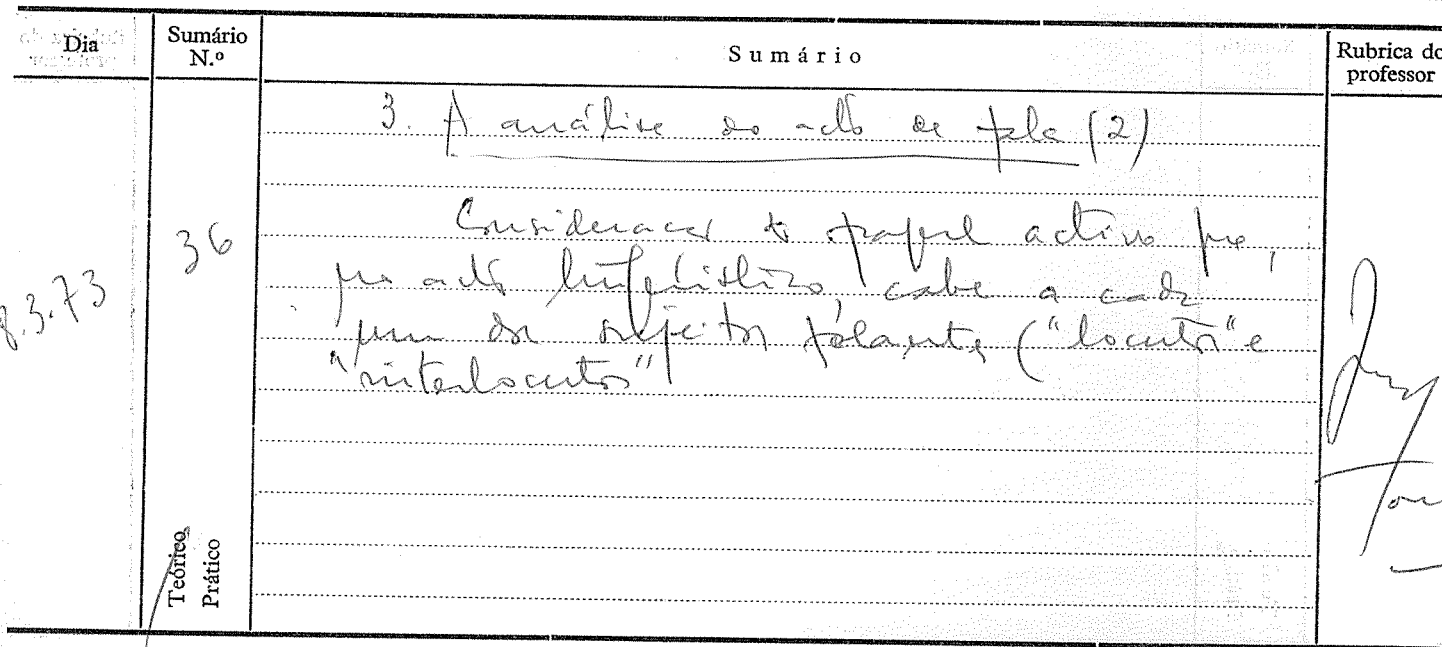 Dia
Sumário N.º
Sumário
Rubrica do professor
8.3.73
36
3. A análise do acto de fala (2)
Consideração do papel activo que,
no acto linguístico, cabe a cada
um dos sujeitos falantes ("locutor" e
"interlocutor"
Teórico
Prático